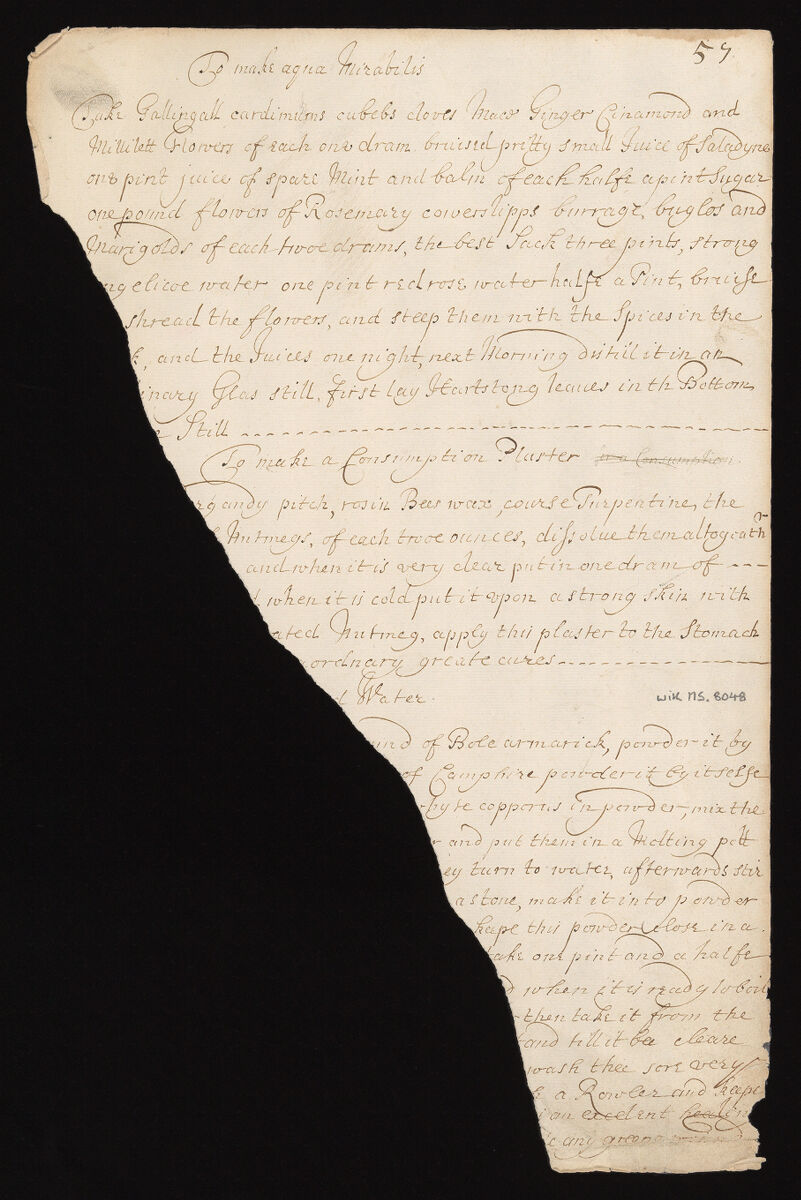 57
To make aqua Mirabilis
Take Gallingall cardimums cubebs cloves Mace Ginger Cinamond and
Millilett Flowers of each one dram bruised pretty small Juice of Saladyne
one pint juice of spare Mint and balm of each halfe a pint Sugar
one pound flowers of Rosemary cowerslipps burrage, buglos and
Marigolds of each twoe drams, the best Sack three pints, strong
ngelicoe water one pint red rose water halfe a Pint, bruise
shread the flowers, and steep them with the Spices in the
k, and the Juices one night, next Morning distill it in an
inary Glas still, first lay Hartstong leaves in th Bottom
e Still
To make a Consumption Plaster in a Consumption
rgandy pitch, rosin Bees wax, course Turpentine, the
Nutmegs, of each twoe ounces, dissolue them altogeathr
and when it is very clear put in one dram of
d when it is cold put it vpon a strong skin with
ated Nutmeg, apply this plaster to the Stomach
aordnary greate cures
l Water
wik MS. 8048
und of Bole armarick, powder it by
of Camphire powder it by itselfe
hyte copporus in powder, mix the
r and put them in a Melting pott
ey turn to water, afterwards stir
a stone, make it into powder
kape this powder close in a
take one pint and a halfe
d when it is ready to boil
then take it from the
tand till it be cleare
wash thee sore very
a Rowler and kape
an excelent healin
any greene